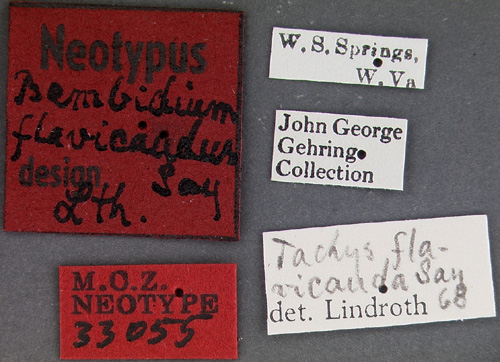 Neotypus
Bembidium
flavicaudus
design. Say
Lth.
W. S. Springs,
W. Va
John George
Gehring
Collection
M.C.Z.
NEOTYPE
33055
Tachys fla-
vicauda Say
det. Lindroth 68